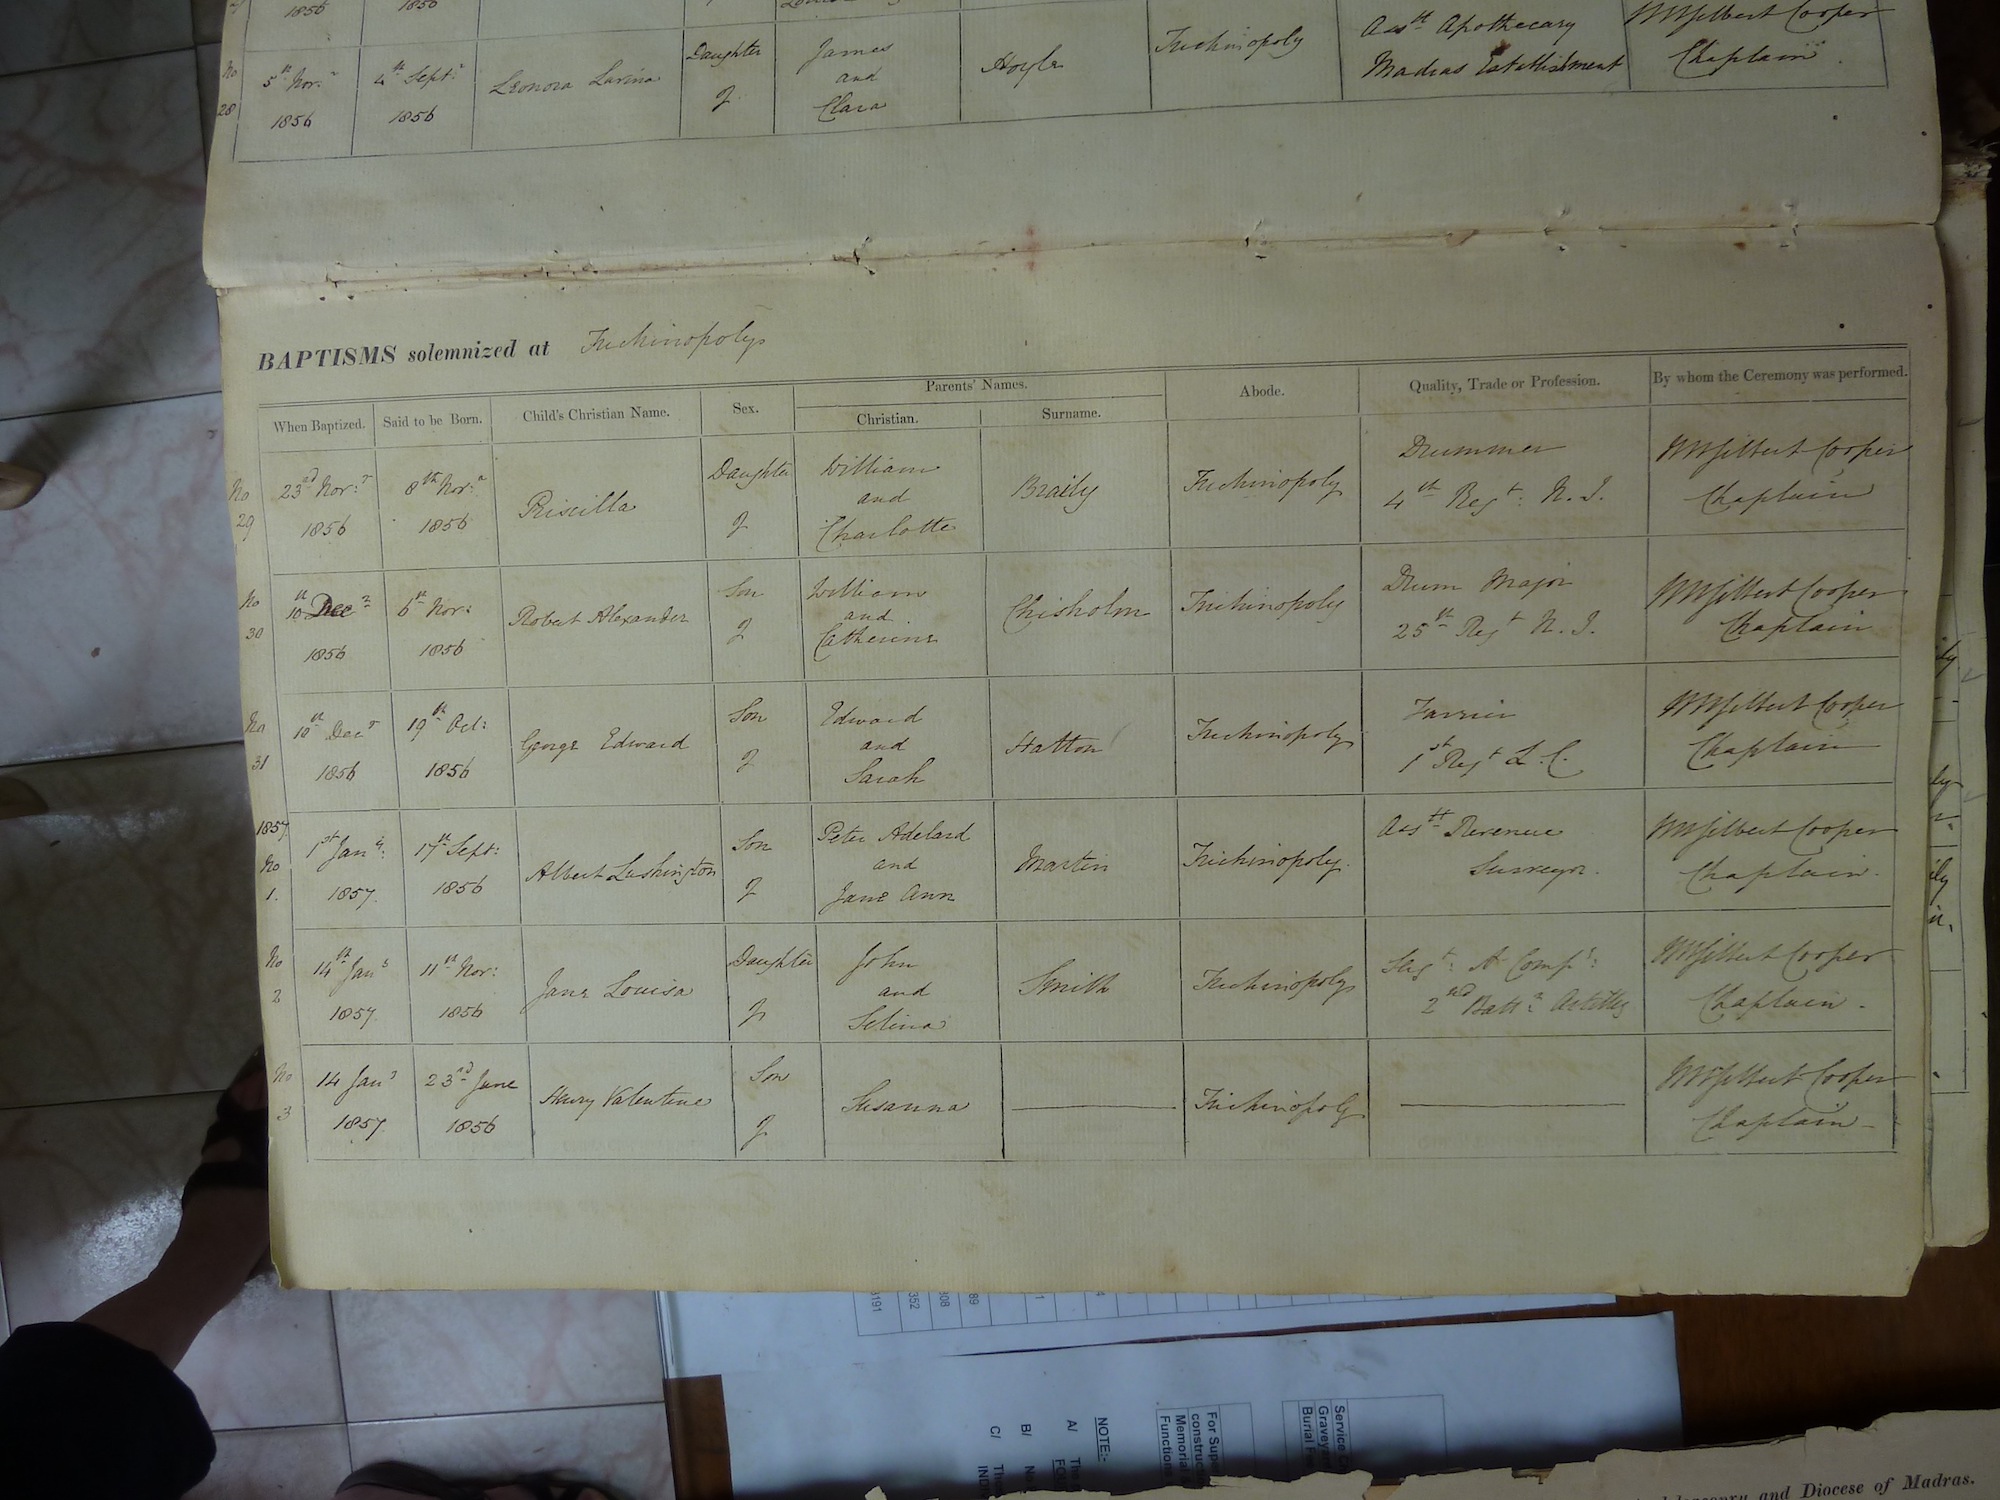 1856 1856
No 5th Nov.r 4th Sept.r Leonora Daughter James Hoyle Trichinopoly Asst Apothecary Cooper
28 1856 1856 of and Clara Madras Establishment Chaplain.
BAPTISMS solemnized at Trichinopoly
When Baptized. Said to be Born. Child's Christian Name. Sex. Parents' Names. Abode. Quality, Trade or Profession. By whom the Ceremony was performed.
Christian. Surname.
No 23rd Nov:r 8th Nov:r Priscilla Daughter William Braily Trichinopoly Drummer Wm Gilbert Cooper
29 1856 1856 of and Charlotte 4th Regt: N. I. Chaplain
No 10th Decr 6th Nov: Robert Alexander Son William Chisholm Trichinopoly Drum Major Wm Gilbert Cooper
30 1856 1856 of and Catherine 25th Regt N. I. Chaplain
No 10th Decr 19th Oct: George Edward Son Edward Hatton Trichinopoly Farrier Wm Gilbert Cooper
31 1856 1856 of and Sarah 1st Regt L. C. Chaplain
1857
No 1st Jany: 17th Sept: Albert Lushington Son Peter Adelard Martin Trichinopoly. Asst Revenue Wm Gilbert Cooper
1. 1857. 1856 of and Jane Ann Surveyor. Chaplain.
No 14th Jany 11th Nov: Jane Louisa Daughter John Smith Trichinopoly Sergt: A Compy: Wm Gilbert Cooper
2 1857. 1856 of and Selina 2nd Battn Artilly Chaplain.
No 14 Jany 23rd June Henry Valentine Son Susanna Trichinopoly Wm Gilbert Cooper
3 1857. 1856 of Chaplain
352
89
NOTE:-
A/
B/
C/
and Diocese of Madras.